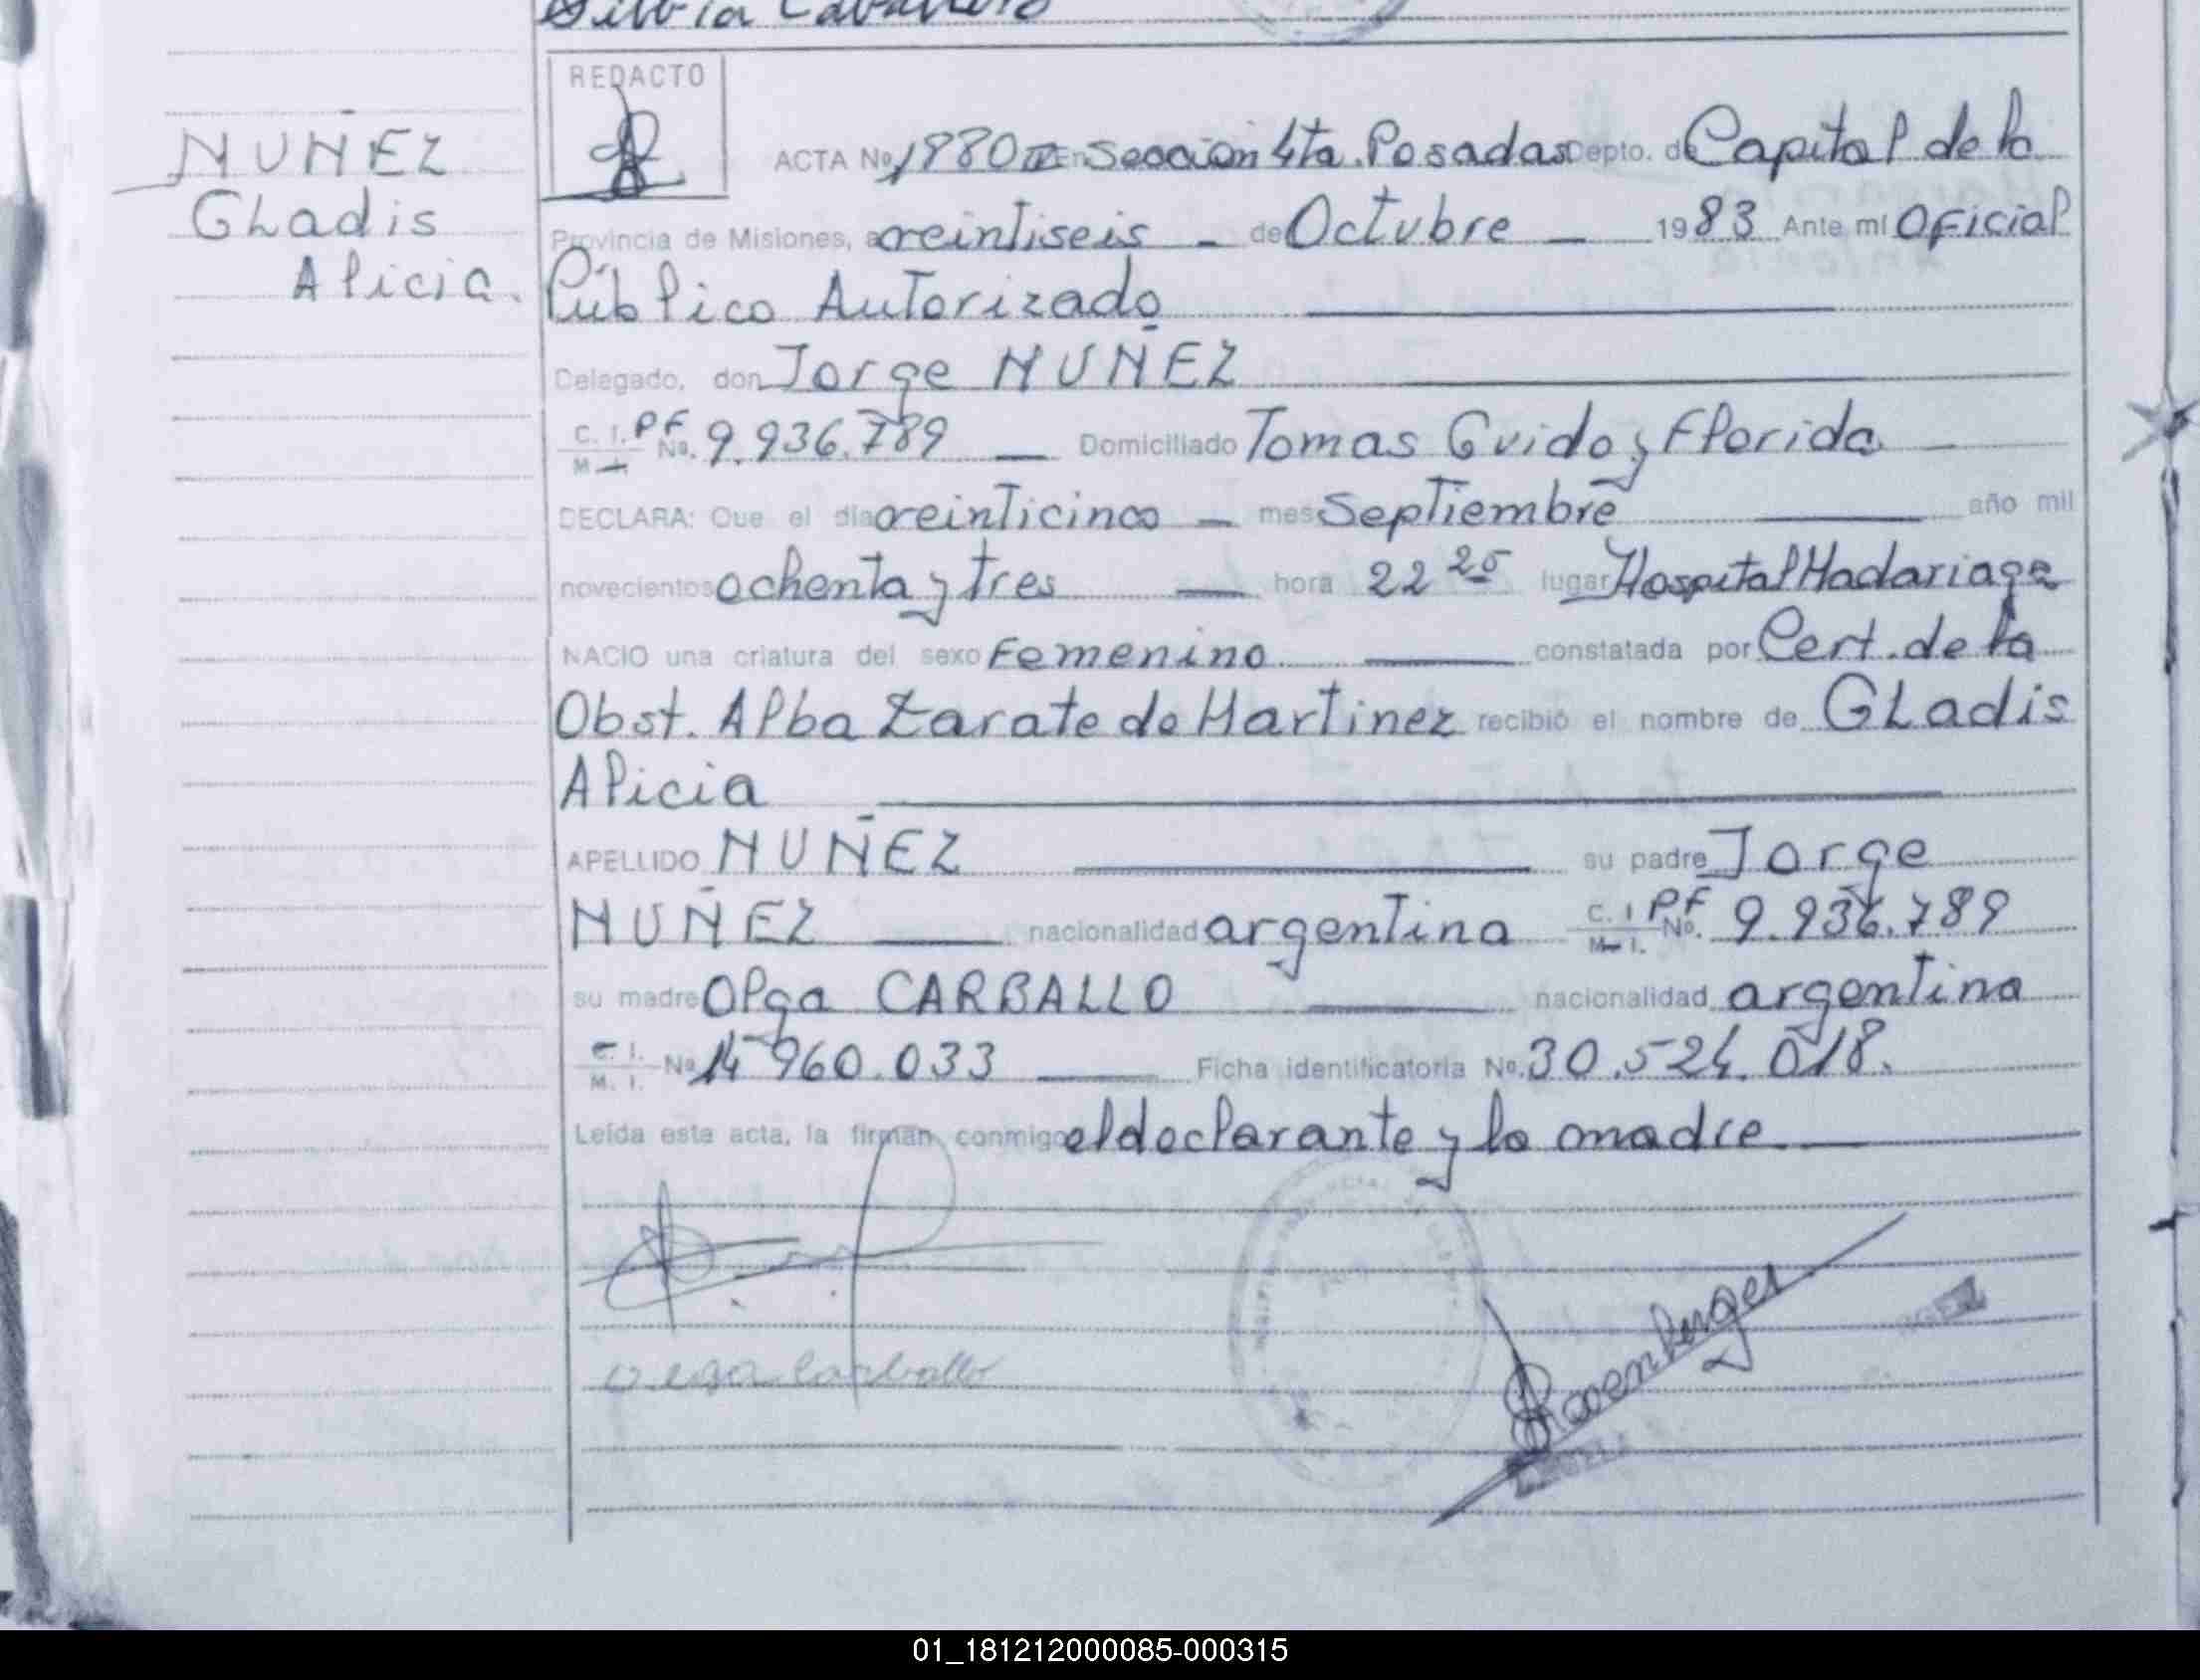 Silvia Caballero
REDACTO
NUÑEZ
Gladis
Alicia.
ACTA Nº 1880 En Sección 4ta. Posadas Depto. de Capital de la
Provincia de Misiones, a veintiseis - de Octubre - 1983 Ante mi Oficial
Público Autorizado
Delegado, don Jorge NUÑEZ
C. I. PF M No. 9.936.789 - Domiciliado Tomas Guido y Florida
DECLARA: Que el día veinticinco - mes Septiembre año mil
novecientos ochenta y tres hora 22 25 lugar Hospital Madariaga
NACIO una criatura del sexo Femenino constatada por Cert. de la
Obst. Alba Zarate de Martinez recibió el nombre de Gladis
Alicia
APELLIDO NUÑEZ su padre Jorge
NUÑEZ nacionalidad argentina C. I PF M. I. No. 9.936.789
su madre Olga CARBALLO nacionalidad argentina
C. I. M. I. No 14 960.033 Ficha identificatoria No. 30.524.018.
Leída este acta, la firman conmigo el declarante y la madre
Olga Carballo
01_181212000085-000315